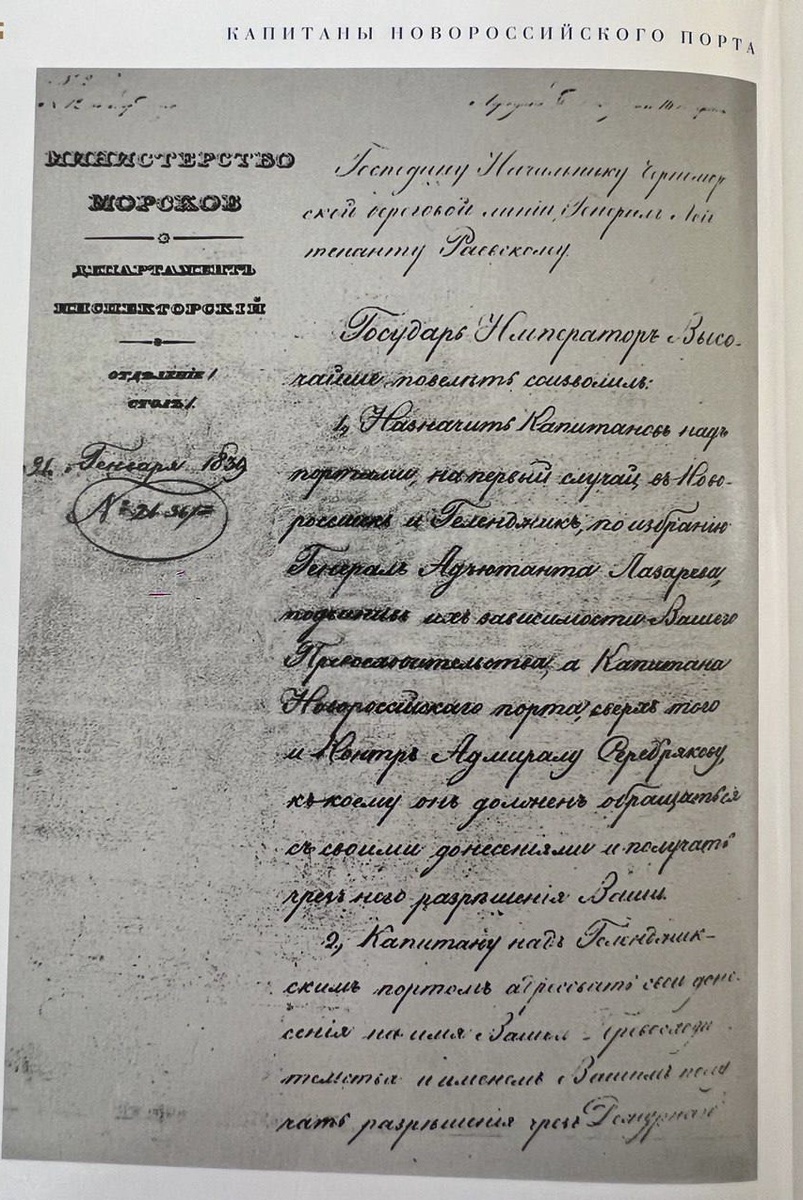 КАПИТАНЫ НОВОРОССИЙСКОГО ПОРТА
МИНИСТЕРСТВО
МОРСКОЕ
ДЕПАРТАМЕНТЪ
ИНСПЕКТОРСКІЙ
ОТДѢЛЕНІЕ
СТОЛЪ
Генваря 1839
№
Господину Начальнику Черномор
ской береговой линіи, Генералъ Лей
тенанту Раевскому.
Государь Императоръ Высо-
чайше повелѣть соизволилъ:
1, Назначить Капитановъ надъ
портами, на первый случай, въ Ново-
россискѣ и Геленджикѣ, по избранію
Генералъ Адъютанта Лазарева,
подчинивъ ихъ зависимости Вашего
Превосходительства, а Капитана
Новороссійскаго порта, сверхъ того
и Контръ Адмиралу Серебрякову,
къ коему онъ долженъ обращаться
съ своими донесеніями и получать
чрезъ него разрѣшенія Ваши.
2, Капитану надъ Геленджик-
скимъ портомъ адресовать свои доне-
сенія на имя Вашего Превосходи
тельства и именемъ Вашимъ полу
чать разрѣшенія чрезъ Дежурнаго